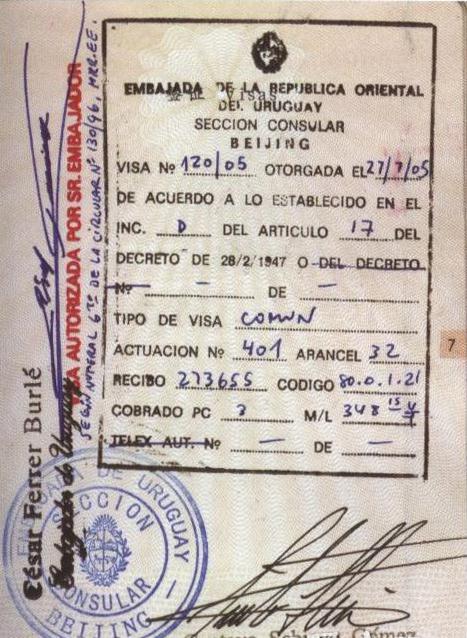 EMBAJADA DE LA REPUBLICA ORIENTAL
DEL URUGUAY
Visas
SECCION CONSULAR
BEIJING
VISA Nº 120/05 OTORGADA EL 27/7/05
DE ACUERDO A LO ESTABLECIDO EN EL
INC. D DEL ARTICULO 17 DEL
DECRETO DE 28/2/1947 O DEL DECRETO
Nº — DE —
TIPO DE VISA COMUN
ACTUACION Nº 401 ARANCEL 32
RECIBO 273655 CODIGO 80.0.1.21
COBRADO PC 3 M/L 348
TELEX AUT. Nº — DE —
7
A AUTORIZADA POR SR. EMBAJADOR
SEGÚN NUMERAL 6 DE LA CIRCULAR Nº 130/96, MRR.EE.
César Ferrer Burlé
Embajador de Uruguay
DE URUGUAY
SECCION
CONSULAR
BEIJING
Gómez